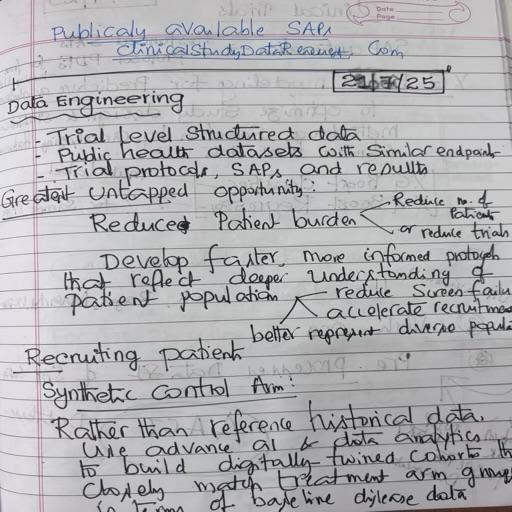 Date
Page
Publicaly available SAPs
ClinicalStudyDataRequest.Com
21/7/25
Data Engineering
- Trial Level structured data
- Public health datasets with similar endpoint
- Trial protocols, SAPs and results
Greatest untapped opportunity:
Reduced Patient burden
Reduce no. of
Patients
or reduce trials
Develop faster, more informed protocols
that reflect deeper understanding of
patient population
reduce screen failu
accelerate recruitmen
better represent diverse popula
Recruiting patient
Synthetic Control Arm:
Rather than reference historical data,
Use advance ai & data analytics
to build digitally-twined cohorts th
Closely match treatment arm group
in terms of baseline disease data